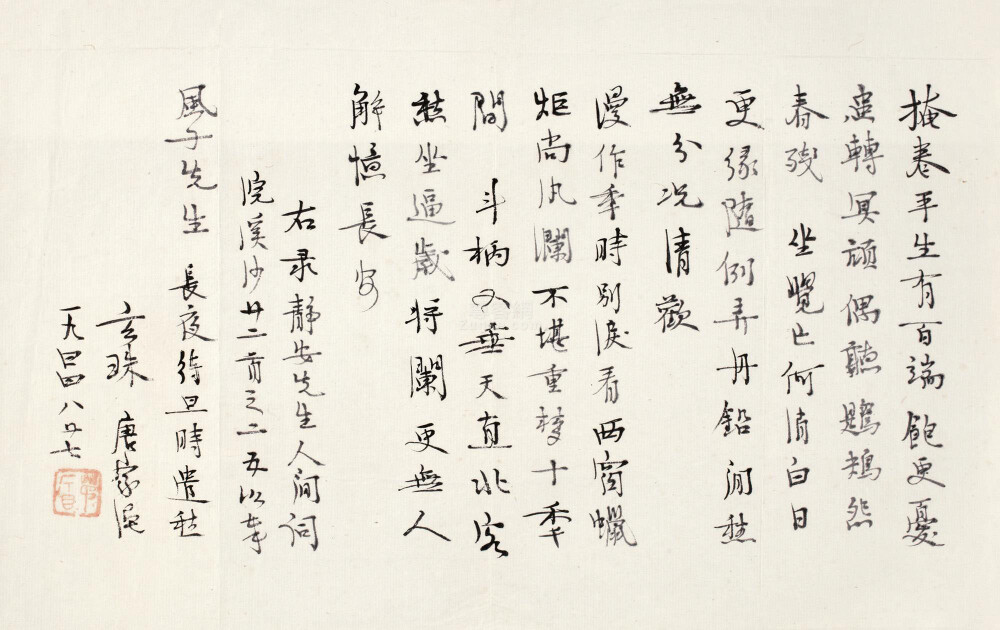 掩卷平生有百端飽更憂
患轉冥頑偶聽鶗鴂怨
春殘 坐覺亡何消白日
更緣隨例弄丹鉛閒愁
無分況清歡
漫作秊時別淚看西窗蠟
炬尚汍瀾不堪重夢十秊
間 斗柄又垂天直北客
愁坐逼歲将闌更無人
解憶長安
右录静安先生人间词
浣溪沙廿二首之二五以奉
風子先生 長夜待旦時遣愁
玄珠 唐蒙
一九四四 八 廿七